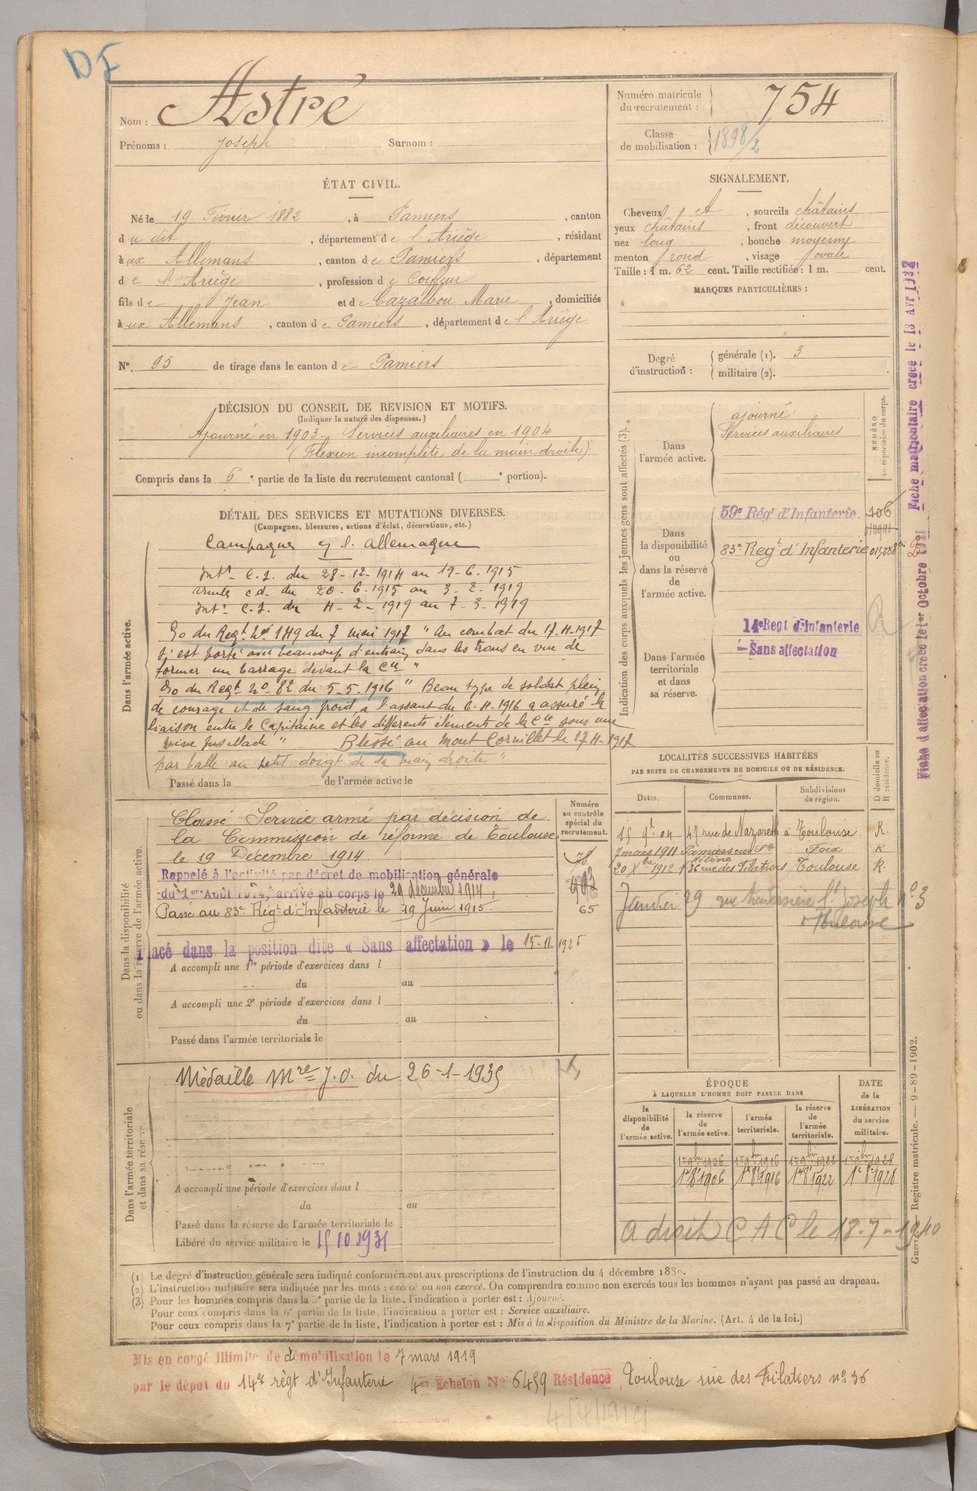 DF
Nom : Astré
Prénoms : Joseph Surnom :
Numéro matricule du recrutement : 754
Classe de mobilisation : 1898/2
ÉTAT CIVIL.
Né le 19 Février 1882, à Pamiers, canton
du dit, département de l'Ariège, résidant
à ux Allemans, canton de Pamiers, département
de l'Ariège, profession de Coiffeur
fils de Jean et de Cazalbou Marie, domiciliés
à ux Allemans, canton de Pamiers, département de l'Ariège
N°. 95 de tirage dans le canton de Pamiers
SIGNALEMENT.
Cheveux et, sourcils châtains
yeux châtains, front découvert
nez long, bouche moyenne
menton rond, visage ovale
Taille : 1 m. 62 cent. Taille rectifiée : 1 m. cent.
MARQUES PARTICULIÈRES :
Degré d'instruction : générale (1). 3
militaire (2).
DÉCISION DU CONSEIL DE REVISION ET MOTIFS.
(Indiquer la nature des dispenses.)
Ajourné en 1903 - Services auxiliaires en 1904
(Flexion incomplète de la main droite)
Compris dans la 6e partie de la liste du recrutement cantonal ( e portion).
DÉTAIL DES SERVICES ET MUTATIONS DIVERSES.
(Campagnes, blessures, actions d'éclat, décorations, etc.)
Dans l'armée active.
Campagnes c/ l'allemagne
Intr. C.S. du 28-12-1914 au 19-6-1915
armée c.d. du 20-6-1915 au 3-2-1919
Intr. C.S. du 4-2-1919 au 7-3-1919
Go du Regt No 149 du 7 mai 1917 " Au combat du 17-4-1917
s'est porté avec beaucoup d'entrain dans les trous en vue de
former un barrage devant la Cie "
Go du Regt No 82 du 5-5-1916 " Beau type de soldat plein
de courage et de sang froid, a l'assaut du 6-4-1916 a assuré la
liaison entre le Capitaine et les différents éléments de la Cie sous une
vive fusillade " Blessé au Mont Cornillet le 17-4-1917
par balle au petit doigt de la main droite
Passé dans la de l'armée active le
Indication des corps auxquels les jeunes gens sont affectés (3).
NUMÉRO au répertoire du corps.
Dans l'armée active.
ajourné
Services auxiliaires
Dans la disponibilité ou dans la réserve de l'armée active.
59e Régt d'Infanterie
83e Régt d'Infanterie
Dans l'armée territoriale et dans sa réserve.
14e Regt d'Infanterie
Sans affectation
Fiche matriculaire créée le 13 AVR 1938
Fiche d'affectation créée le 1er Octobre 1921
LOCALITÉS SUCCESSIVES HABITÉES
PAR SUITE DE CHANGEMENTS DE DOMICILE OU DE RÉSIDENCE.
Dates. Communes. Subdivisions de région. D domicile ou R résidence.
15 04 47 rue de Nazareth à Toulouse R.
7 mars 1911 Foix R
20 Xbre 1912 36 rue des Filatiers Toulouse R.
Janvier 29 rue St Joseph n° 3
Toulouse
Dans la disponibilité ou dans la réserve de l'armée active.
Numéro au contrôle spécial du recrutement.
Classé Service armé par décision de
la Commission de réforme de Toulouse
le 19 Décembre 1914
Rappelé à l'activité par décret de mobilisation générale
du 1er Août 1914, arrivé au corps le 20 décembre 1914
Passé au 83e Régt d'Infanterie le 19 Juin 1915. 65
Placé dans la position dite « Sans affectation » le 15-11 1925
A accompli une 1re période d'exercices dans l
du au
A accompli une 2e période d'exercices dans l
du au
Passé dans l'armée territoriale le
Dans l'armée territoriale et dans sa réserve.
Médaille Mre J.O. du 26-1-1935
A accompli une période d'exercices dans l
du au
Passé dans la réserve de l'armée territoriale le
Libéré du service militaire le 15 10 1931
ÉPOQUE
À LAQUELLE L'HOMME DOIT PASSER DANS
DATE de la LIBÉRATION du service militaire.
la disponibilité de l'armée active. la réserve de l'armée active. l'armée territoriale. la réserve de l'armée territoriale.
1er 9bre 1906 1er 9bre 1916 1er 9bre 1922 1er 9bre 1928
1er 8 1906 1er 8 1916 1er 8 1922 1er 8 1928
a droit C A C le 18-7-1940
Guerre. Registre matricule. — 9-89-1902.
(1) Le degré d'instruction générale sera indiqué conformément aux prescriptions de l'instruction du 4 décembre 1889.
(2) L'instruction militaire sera indiquée par les mots : exercé ou non exercé. On comprendra comme non exercés tous les hommes n'ayant pas passé au drapeau.
(3) Pour les hommes compris dans la 5e partie de la liste, l'indication à porter est : Ajourné.
Pour ceux compris dans la 6e partie de la liste, l'indication à porter est : Service auxiliaire.
Pour ceux compris dans la 7e partie de la liste, l'indication à porter est : Mis à la disposition du Ministre de la Marine. (Art. 4 de la loi.)
Mis en congé illimité de démobilisation le 7 mars 1919
par le dépôt du 14e régt d'Infanterie 4er Echelon N° 6459 Résidence Toulouse rue des Filatiers n° 36